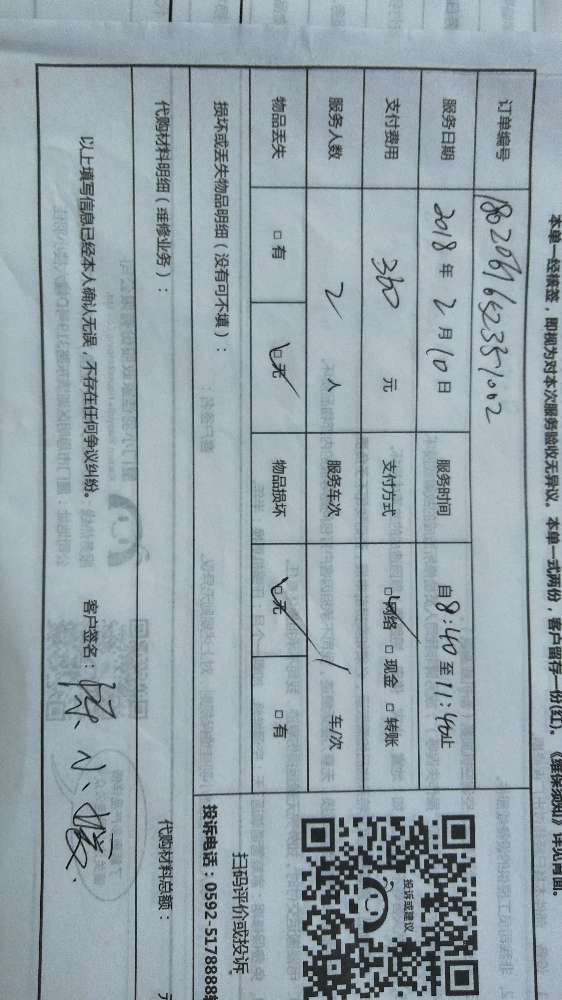 本单一经接签，即视为对本次服务验收无异议。本单一式两份，客户留存一份(红)。《维保须知》详见背面。
订单编号
服务日期 2018 年 2 月 10 日 服务时间 自 8:40 至 11:40 止
支付费用 360 元 支付方式 □网络 □现金 □转账
服务人数 2 人 服务车次 1 车/次
物品丢失 □有 □无 物品损坏 □无 □有
损坏或丢失物品明细（没有可不填）：
代购材料明细（维修业务）： 代购材料总额：
以上填写信息已经本人确认无误，不存在任何争议纠纷。 客户签名：陈小
投诉或建议
扫码评价或投诉
投诉电话：0592-5178888